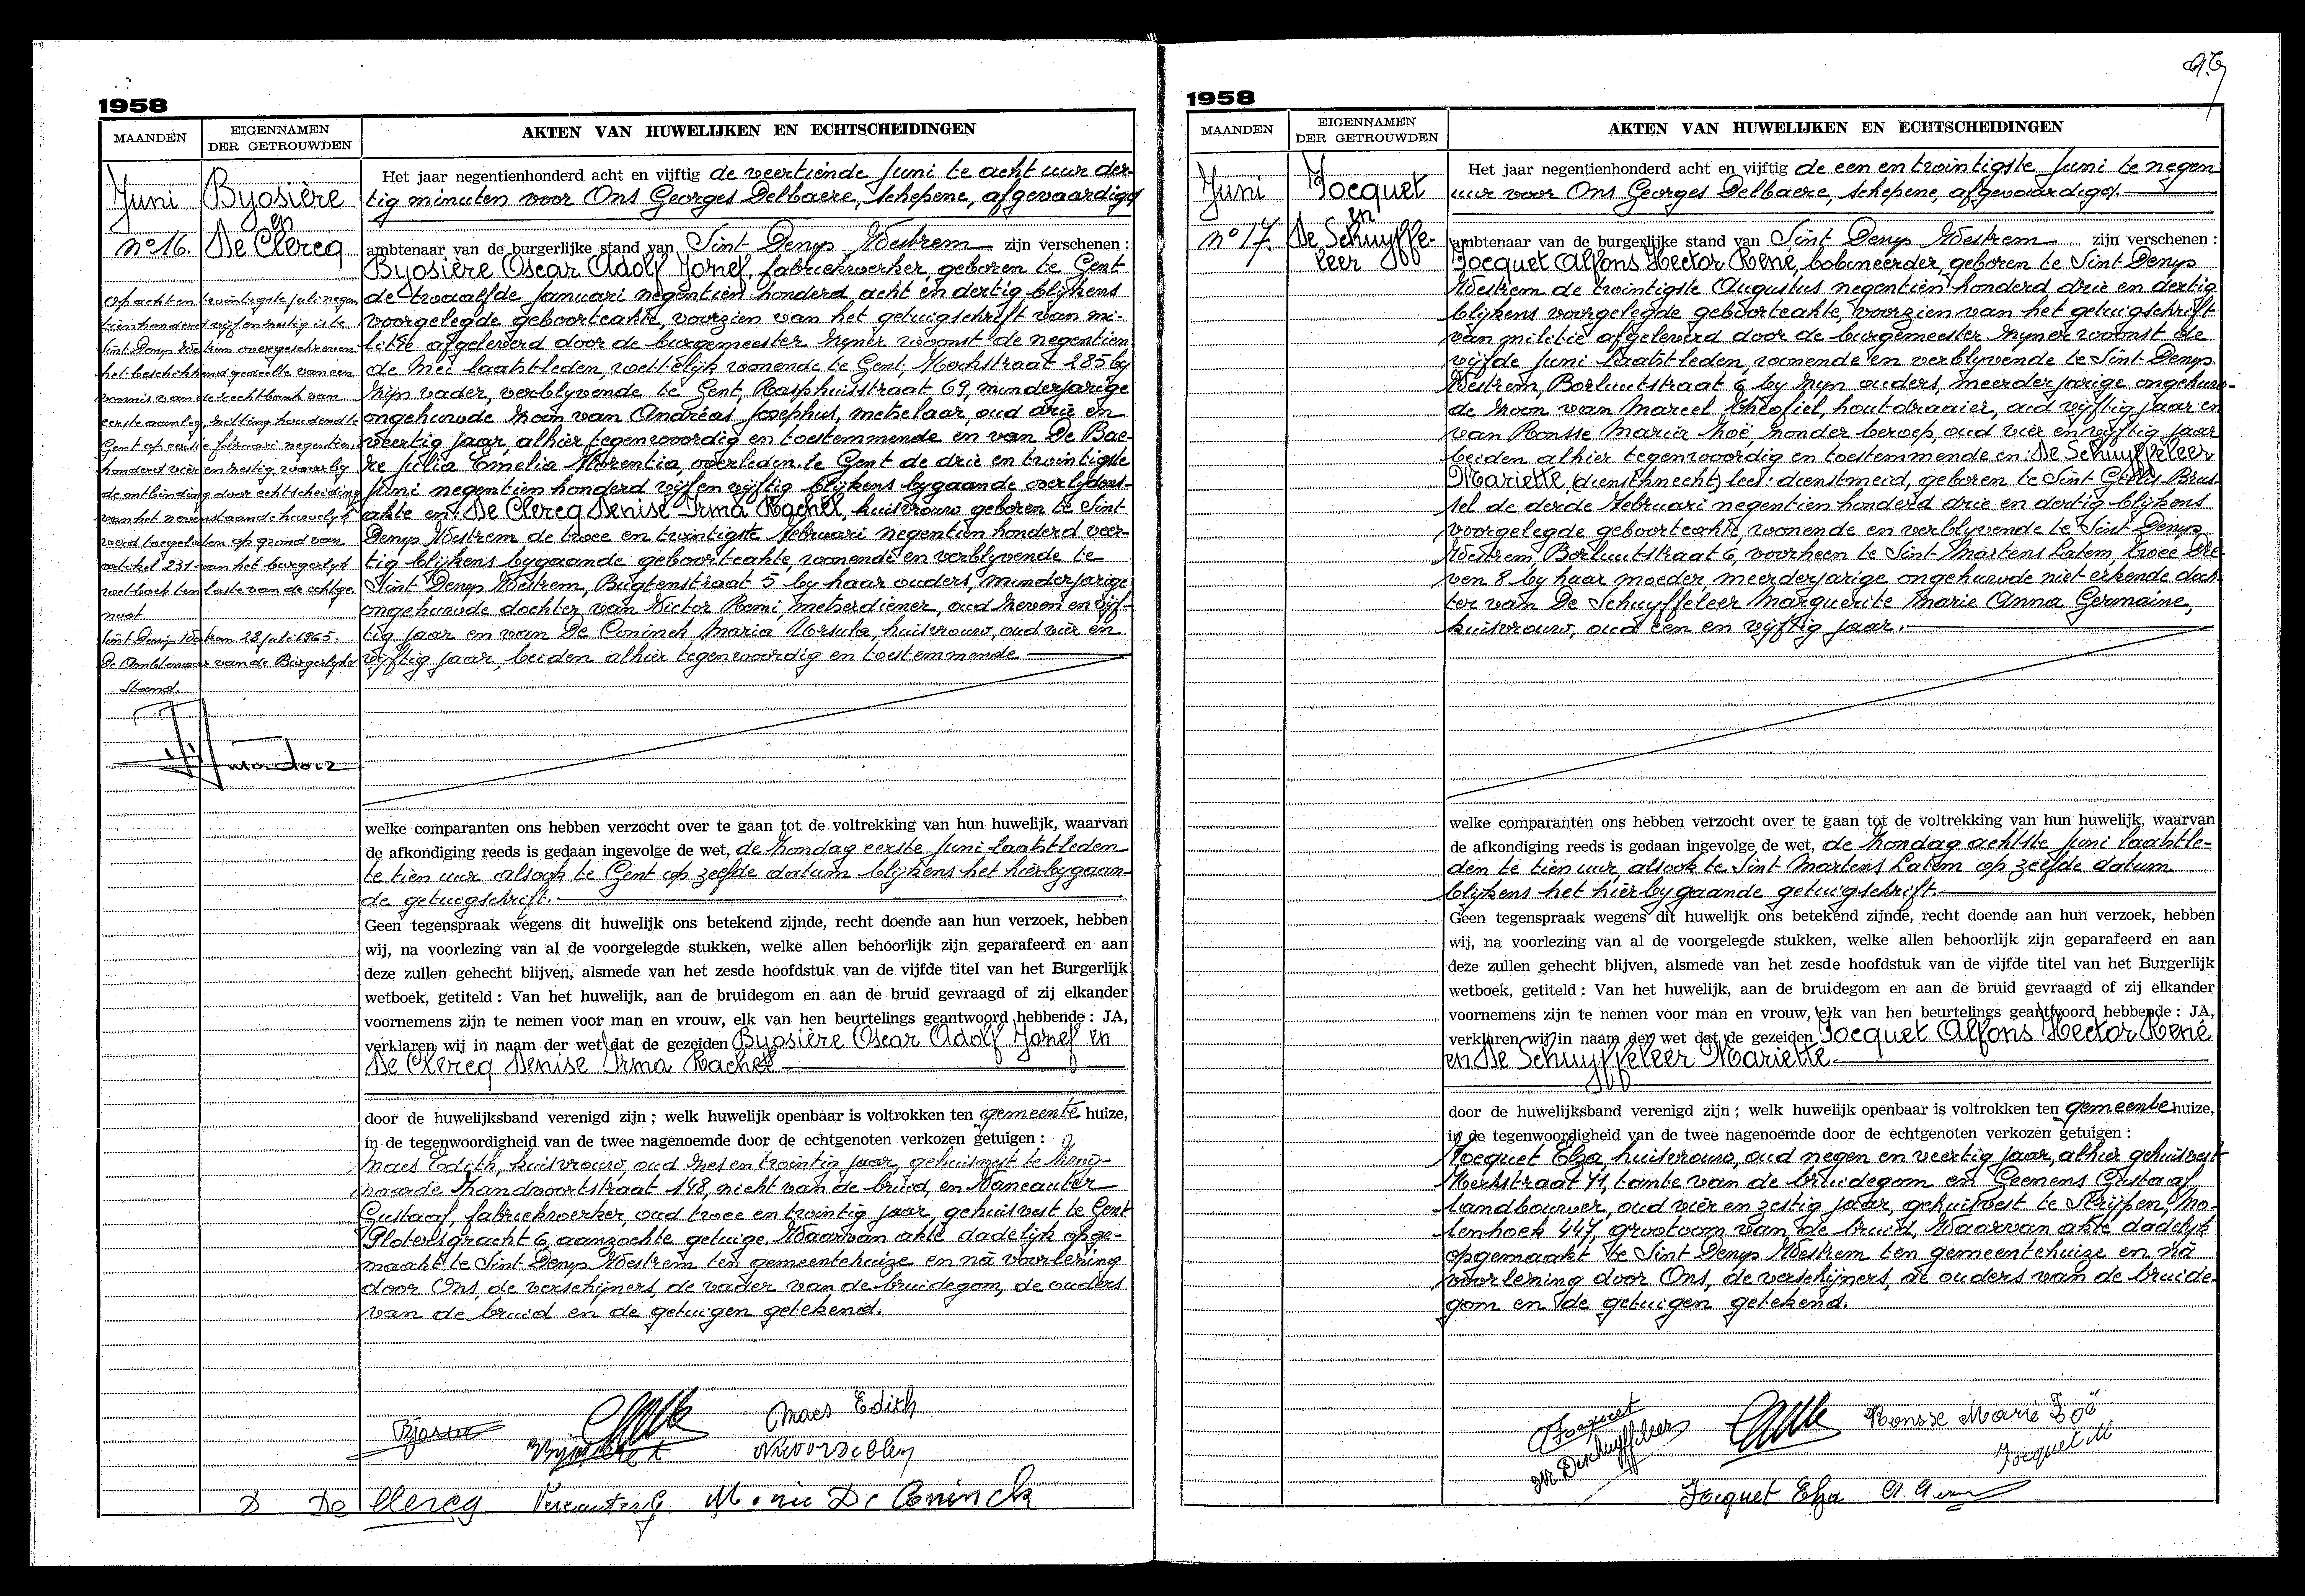 1958
MAANDEN
EIGENNAMEN
DER GETROUWDEN
AKTEN VAN HUWELIJKEN EN ECHTSCHEIDINGEN
Juni
Byosière
en
De Clercq
n° 16.
Op acht en twintigste juli negen
tienhonderd vijf en zestig is te
Sint Denys Westrem overgeschreven
het beschikkend gedeelte van een
vonnis van de rechtbank van
eerste aanleg, zitting houdend te
Gent op eerste februari negentien
honderd vier en zestig, waarby
de ontbinding door echtscheiding
van het nevenstaande huwelyk
werd toegelaten op grond van
artikel 231 van het burgerlyk
wetboek ten laste van de echtge
noot
Sint Denys Westrem 28 juli 1965.
De Ambtenaar van de Burgerlyke
Stand.
Het jaar negentienhonderd acht en vijftig de veertiende Juni te acht uur der-
tig minuten voor Ons Georges Delbaere, Schepene, afgevaardigd
ambtenaar van de burgerlijke stand van Sint Denys Westrem zijn verschenen :
Byosière Oscar Adolf Jozef, fabriekwerker, geboren te Gent
de twaalfde Januari negentien honderd acht en dertig blijkens
voorgelegde geboorteakte, voorzien van het getuigschrift van mi-
litie afgeleverd door de burgemeester zyner woonst de negentien
de Mei laatstleden, wettelijk wonende te Gent, Meckstraat 285 by
zijn vader, verblyvende te Gent, Rasphuisstraat 69, minderjarige
ongehuwde zoon van Andréas Josephus, metselaar, oud drie en
veertig jaar, alhier tegenwoordig en toestemmende en van De Bae-
re Julia Emelia Florentia, overleden te Gent de drie en twintigste
Juni negentien honderd vijf en vijftig blijkens bygaande overlydens-
akte en: De Clercq Denise Irma Rachel, huisvrouw geboren te Sint
Denys Westrem de twee en twintigste Februari negentien honderd veer-
tig blijkens bygaande geboorteakte, wonende en verblyvende te
Sint Denys Westrem, Bugtenstraat 5 by haar ouders, minderjarige
ongehuwde dochter van Victor Remi, metserdiener, oud zeven en vijf-
tig jaar en van De Coninck Maria Ursula, huisvrouw, oud vier en
vijftig jaar, beiden alhier tegenwoordig en toestemmende
welke comparanten ons hebben verzocht over te gaan tot de voltrekking van hun huwelijk, waarvan
de afkondiging reeds is gedaan ingevolge de wet, de zondag eerste Juni laatstleden
te tien uur alsook te Gent op zelfde datum blijkens het hierbygaan-
de getuigschrift.
Geen tegenspraak wegens dit huwelijk ons betekend zijnde, recht doende aan hun verzoek, hebben
wij, na voorlezing van al de voorgelegde stukken, welke allen behoorlijk zijn geparafeerd en aan
deze zullen gehecht blijven, alsmede van het zesde hoofdstuk van de vijfde titel van het Burgerlijk
wetboek, getiteld : Van het huwelijk, aan de bruidegom en aan de bruid gevraagd of zij elkander
voornemens zijn te nemen voor man en vrouw, elk van hen beurtelings geantwoord hebbende : JA,
verklaren wij in naam der wet dat de gezeiden Byosière Oscar Adolf Jozef en
De Clercq Denise Irma Rachel
door de huwelijksband verenigd zijn ; welk huwelijk openbaar is voltrokken ten gemeente huize,
in de tegenwoordigheid van de twee nagenoemde door de echtgenoten verkozen getuigen :
Maes Edith, huisvrouw, oud zes en twintig jaar, gehuisvest te Zwij-
naarde Zandvoortstraat 148, nicht van de bruid, en Vaneauter
Gustaaf, fabriekwerker, oud twee en twintig jaar, gehuisvest te Gent
Plotersgracht 6, aanzochte getuige. Waarvan akte dadelijk opge-
maakt te Sint Denys Westrem ten gemeentehuize en na voorlezing
door Ons, de verschijners, de vader van de bruidegom, de ouders
van de bruid en de getuigen getekend.
Maes Edith
D De Clercq
Marie De Coninck
1958
MAANDEN
EIGENNAMEN
DER GETROUWDEN
AKTEN VAN HUWELIJKEN EN ECHTSCHEIDINGEN
Juni
Jocquet
en
n° 17.
De Schuyffe-
leer
Het jaar negentienhonderd acht en vijftig de een en twintigste Juni te negen
uur voor Ons Georges Delbaere, Schepene, afgevaardigd
ambtenaar van de burgerlijke stand van Sint Denys Westrem zijn verschenen :
Jocquet Alfons Hector René, bobineerder, geboren te Sint Denys
Westrem de twintigste Augustus negentien honderd drie en dertig
blijkens voorgelegde geboorteakte, voorzien van het getuigschrift
van militie afgeleverd door de burgemeester zyner woonst de
vijfde Juni laatstleden, wonende en verblyvende te Sint Denys
Westrem, Borluutstraat 6 by zijn ouders, meerderjarige ongehuw-
de zoon van Marcel Théofiel, houtdraaier, oud vijftig jaar en
van Ronsse Maria Zoë, zonder beroep, oud vier en vijftig jaar
beiden alhier tegenwoordig en toestemmende en: De Schuyffeleer
Mariette, (dienstknecht) lees: dienstmeid, geboren te Sint Gillis Brus
sel de derde Februari negentien honderd drie en dertig blijkens
voorgelegde geboorteakte, wonende en verblyvende te Sint Denys
Westrem, Borluutstraat 6, voorheen te Sint-Martens Latem, twee Dre
ven 8 by haar moeder, meerderjarige ongehuwde niet erkende doch
ter van De Schuyffeleer Marguerite Marie Anna Germaine,
huisvrouw, oud een en vijftig jaar.
welke comparanten ons hebben verzocht over te gaan tot de voltrekking van hun huwelijk, waarvan
de afkondiging reeds is gedaan ingevolge de wet, de zondag achtste Juni laatstle-
den te tien uur, alsook te Sint Martens Latem op zelfde datum
blijkens het hierbygaande getuigschrift.
Geen tegenspraak wegens dit huwelijk ons betekend zijnde, recht doende aan hun verzoek, hebben
wij, na voorlezing van al de voorgelegde stukken, welke allen behoorlijk zijn geparafeerd en aan
deze zullen gehecht blijven, alsmede van het zesde hoofdstuk van de vijfde titel van het Burgerlijk
wetboek, getiteld : Van het huwelijk, aan de bruidegom en aan de bruid gevraagd of zij elkander
voornemens zijn te nemen voor man en vrouw, elk van hen beurtelings geantwoord hebbende : JA,
verklaren wij in naam der wet dat de gezeiden Jocquet Alfons Hector René
en De Schuyffeleer Mariette
door de huwelijksband verenigd zijn ; welk huwelijk openbaar is voltrokken ten gemeente huize,
in de tegenwoordigheid van de twee nagenoemde door de echtgenoten verkozen getuigen :
Jocquet Elza, huisvrouw, oud negen en veertig jaar, alhier gehuisvest
Kerkstraat 71, tante van de bruidegom en Geenens Gustaaf
landbouwer, oud vier en zestig jaar, gehuisvest te Strijpen, Mo-
lenhoek 447, grootoom van de bruid. Waarvan akte dadelijk
opgemaakt te Sint Denys Westrem ten gemeentehuize en na
voorlezing door Ons, de verschijners, de ouders van de bruide-
gom en de getuigen getekend.
Jocquet
Ronsse Marie Zoë
M Deschuyffeleer
Jocquet M
Jocquet Elza